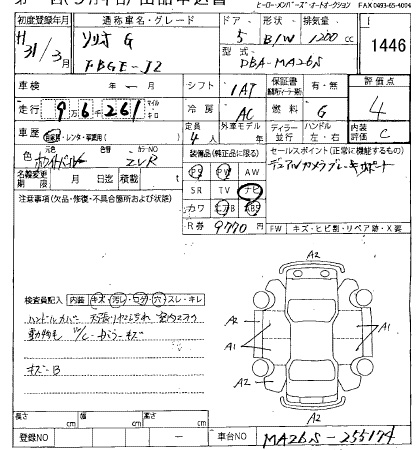 ヒーローメンバーズ・オートオークション FAX 0493-65-4004
初度登録年月 通称車名・グレード ドア 形状 排気量
H 31/3月 ソリオ G 5 B/W 1200 cc 1446
型式
FBGE-J2 DBA-MA26S
車検 年 月 シフト 1AT 保証書 有・無 評価点
走行 9 6 261 マイル キロ 冷房 AC 燃料 G 4
車歴 自家用・レンタ・事業用( ) 定員 4人 外車モデル 年 ディーラー 並行 ハンドル 左・右 内装評価 C
色 元色 色替 カラーNO ZLR 装備品(純正品に限る) セールスポイント(正常に機能するもの)
PS PW AW デュアルカメラブレーキサポート
名義変更期限 月 日迄 積載 t SR TV ナビ
注意事項(欠品・修復・不具合箇所および状態) カワ エアB ABS
R券 9770円 FW キズ・ヒビ割・リペア跡・X要
検査員記入 内装 キズ・汚レ・コゲ・穴・スレ・キレ
ハンドルカバー
キズB
A2
A2
A1 A1
A2
A2
長さ cm 幅 cm 高さ cm
登録NO 車台NO MA26S-255174